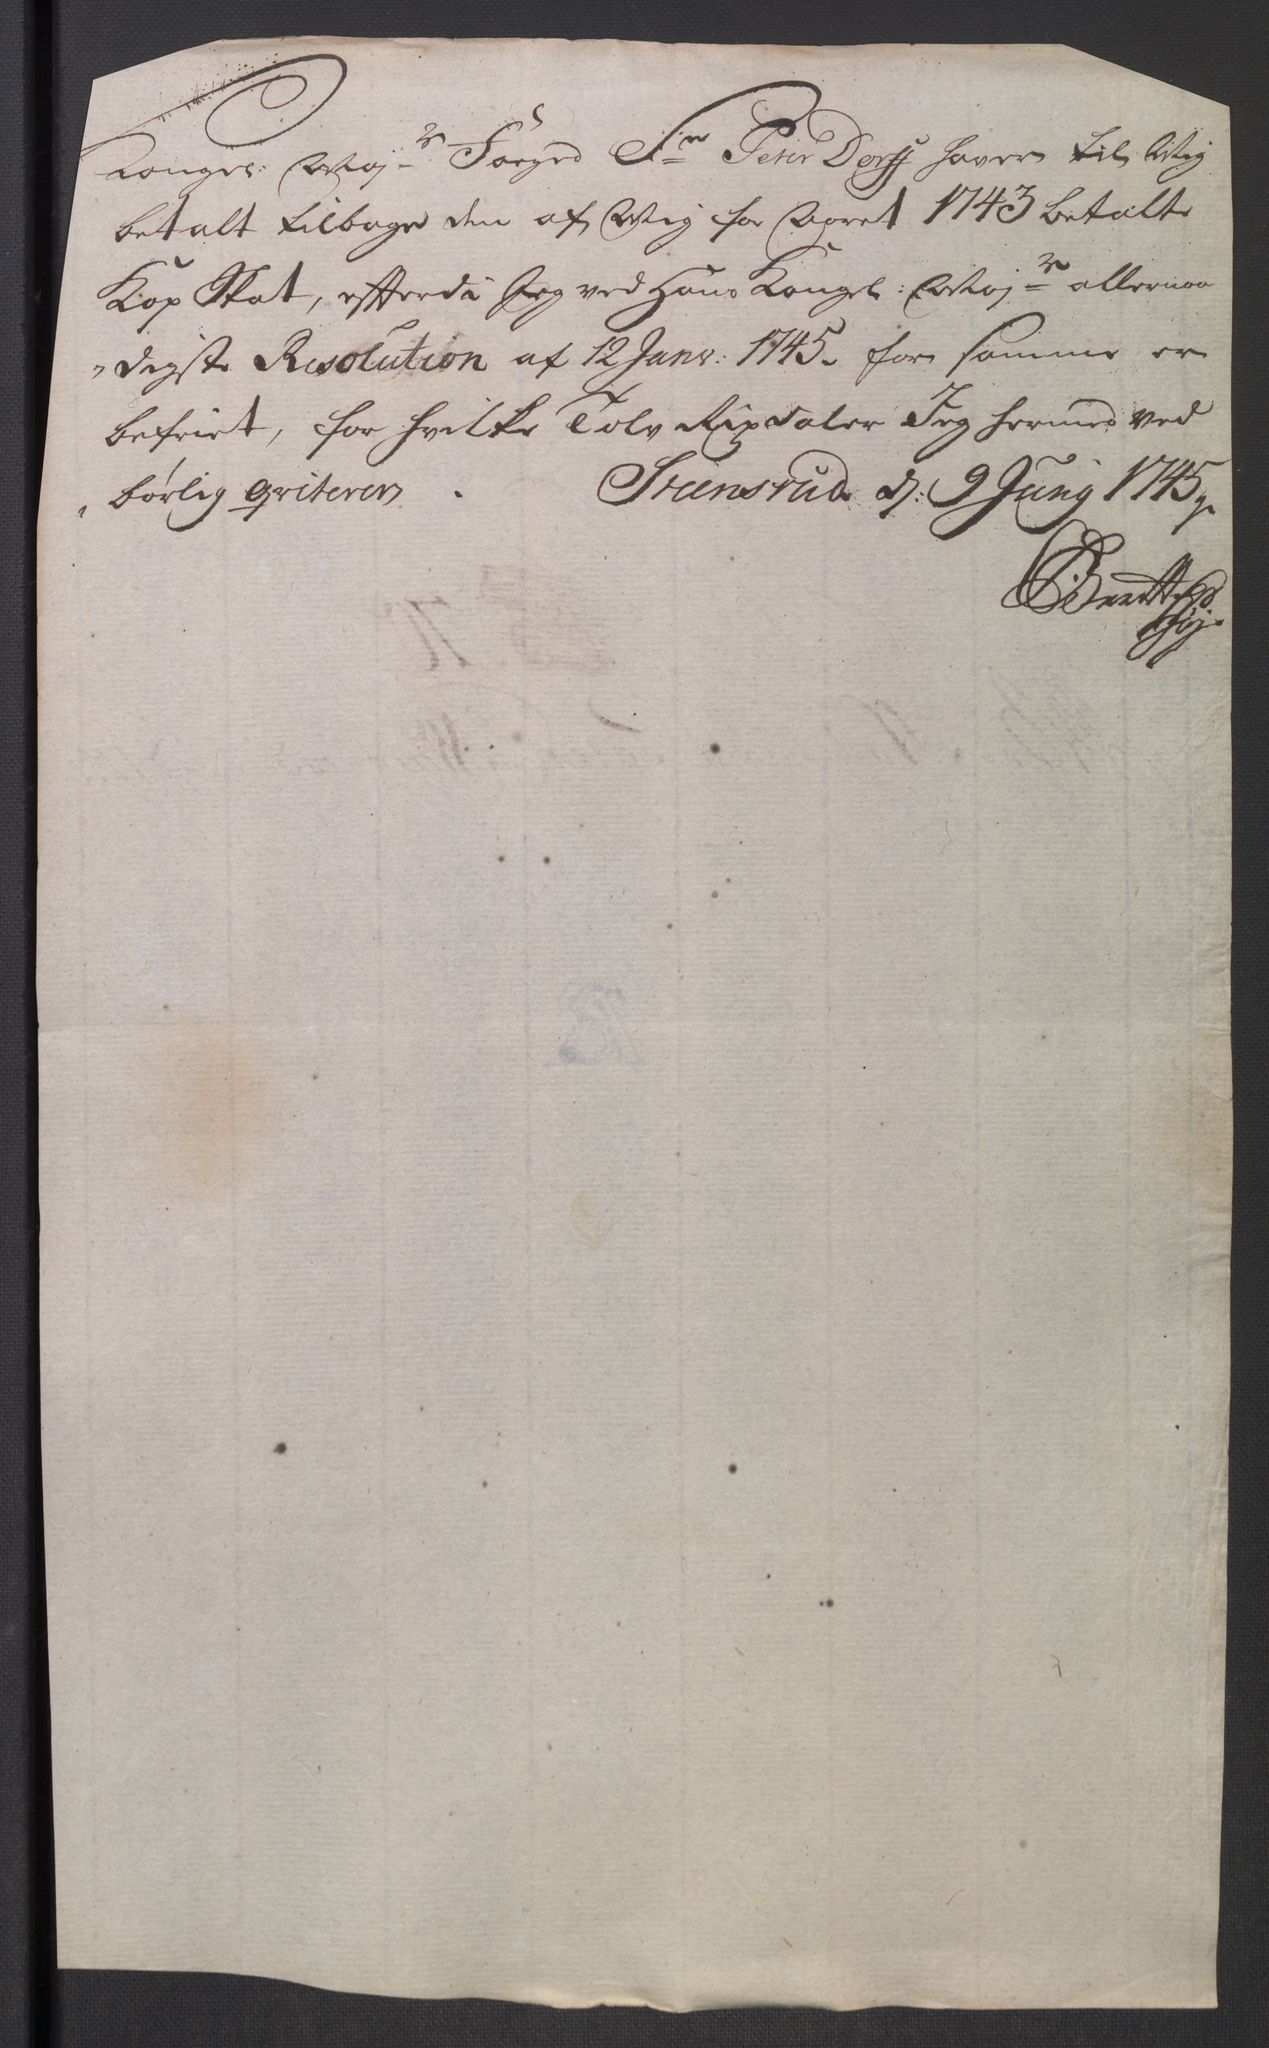 Kongel: Maj:ts Foged Sr. Peter Dorff haver til Mig
betalt tilbage den af Mig for Aaret 1743 betalte
Kop Skat, efterdi Jeg ved Hans Kongel: Maj:ts allernaa
"digste Resolution af 12 Janv: 1745. for samme er
befriet, for hvilke Tolv Rixdaler Jeg hermed ved
"børlig qviterer. Steensrud d: 9 Junij 1745.